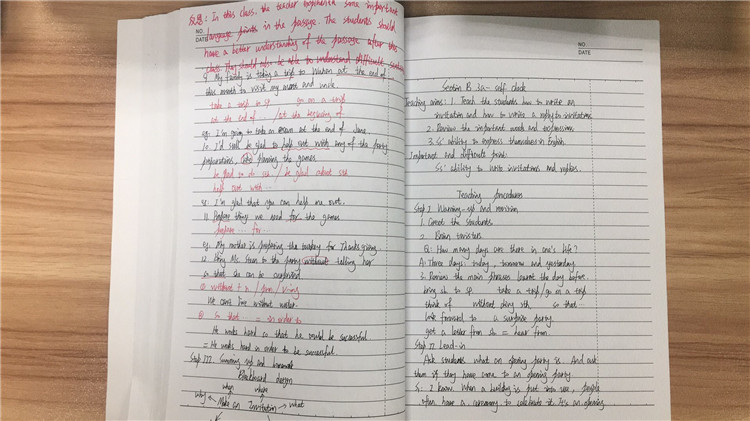 NO.
DATE
反思: In this class, the teacher together some important
language points in the passage. The students should
have a better understanding of the passage after the
class. They should also be able to understand difficult
9. My family is taking a trip to Wuhan at the end of
this month to visit my aunt and uncle
take a trip to sp go on a visit
at the end of / at the beginning of
eg: I'm going to take an exam at the end of June.
10. I'd still be glad to help out with any of the party
preparations, like planning the games
be glad to do sth / be glad about sth
help out with ...
eg: I'm glad that you can help me out.
11. Prepare things we need for the games
prepare ... for ...
eg. My mother is preparing the turkey for Thanksgiving.
12. Bring Ms. Steen to the party without telling her
so that she can be surprised
① without + n / pron / v-ing
We can't live without water.
② so that ... = in order to
He works hard so that he could be successful
= He works hard in order to be successful.
Step III. Summing up and homework
Blackboard design
when where
why Make an Invitation what
NO.
DATE
Section B 3a - self check
Teaching aims: 1. Teach the students how to write an
invitation and how to write a reply to invitations
2. Review the important words and expressions
3. Ss' ability to express themselves in English
Important and difficult point:
Ss' ability to write invitations and replies.
Teaching procedures
Step I Warming-up and revision
1. Greet the students
2. Brain twisters
Q: How many days are there in one's life?
A: Three days: today, tomorrow and yesterday.
3. Review the main phrases learnt the day before.
bring sb to sp take a trip / go on a trip
think of without doing sth so that ...
look forward to a surprise party
get a letter from sb = hear from
Step II Lead-in
Ask students what an opening party is. And ask
them if they have come to an opening party.
S1: I know. When a building is put into use, people
often have a ceremony to celebrate it. It's an opening